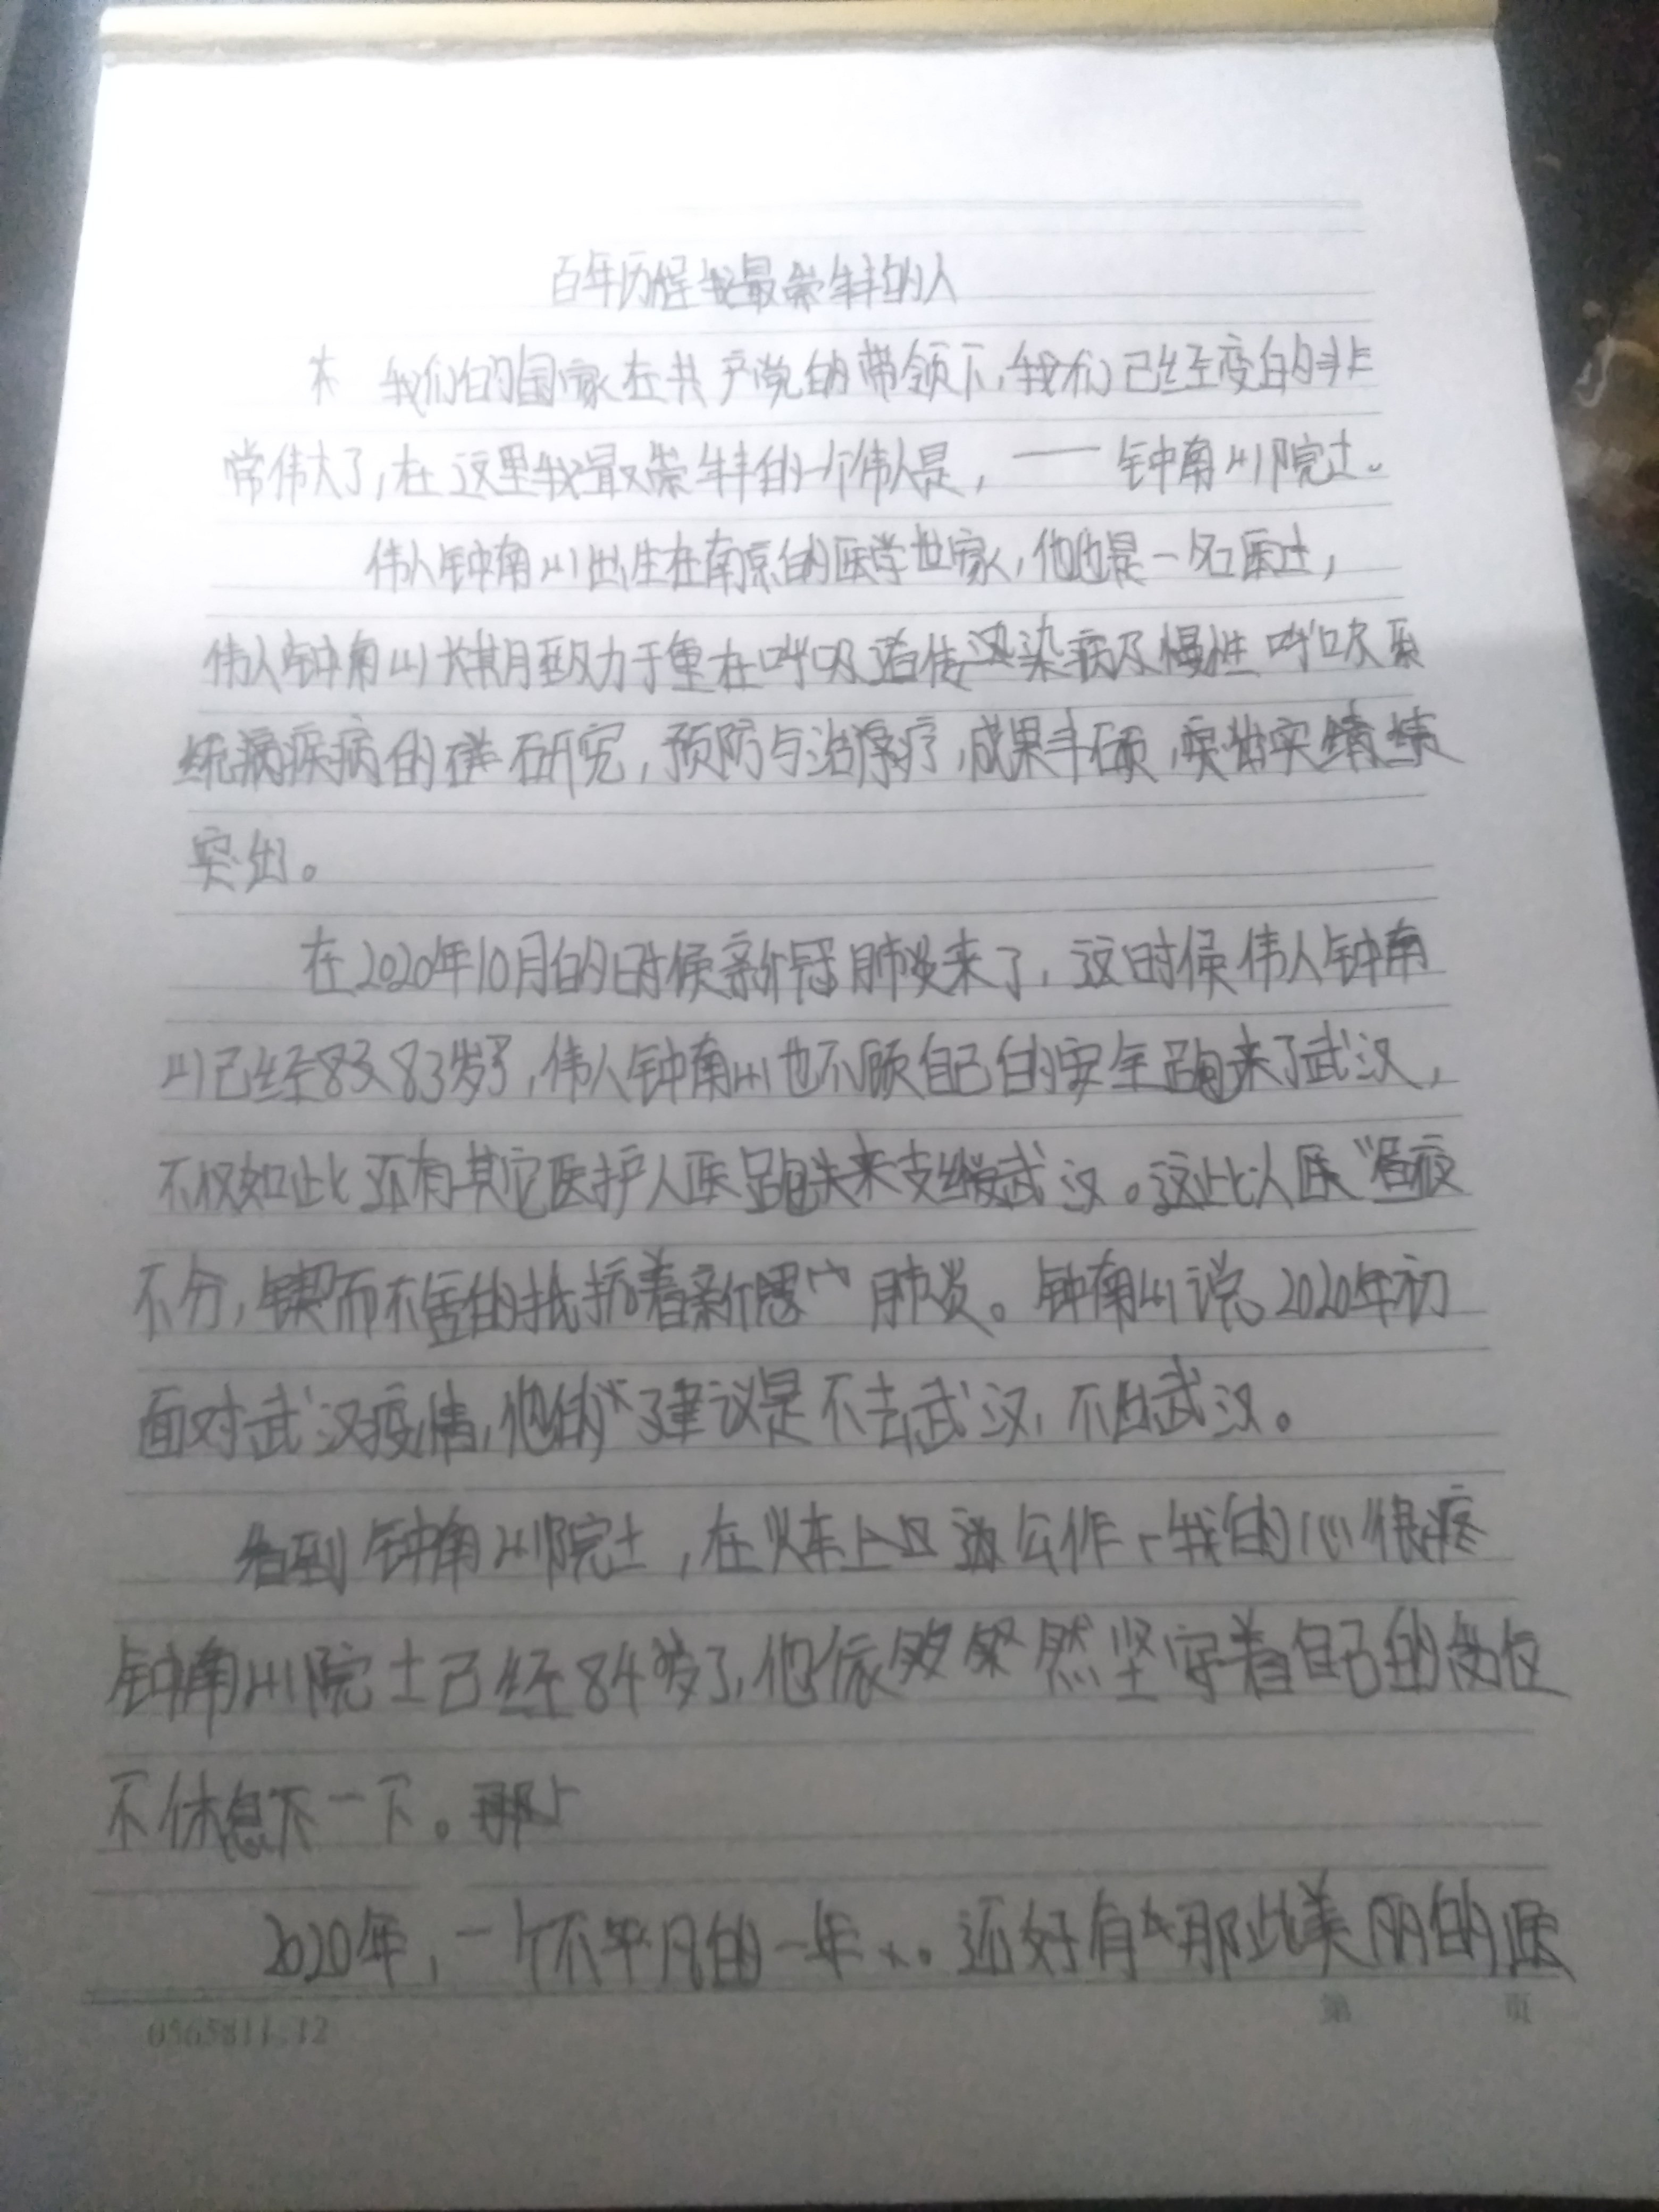 百年历程我最崇拜的人
我们的国家在共产党的带领下,我们已经变的非
常伟大了,在这里我最崇拜的一个伟人是,——钟南山院士。
伟人钟南山出生在南京的医学世家,他也是一名医生,
伟人钟南山长期致力于重在呼吸道传染病及慢性呼吸系
统疾病的研究,预防与治疗,成果丰硕,实绩
突出。
在2020年10月的时候新冠肺炎来了,这时候伟人钟南
山已经83岁了,伟人钟南山也不顾自己的安全跑来了武汉,
不仅如此还有其它医护人医跑来支援武汉。这些人医昼夜
不分,锲而不舍的抵抗着新冠肺炎。钟南山说2020年初
面对武汉疫情,他的建议是不去武汉,不出武汉。
看到钟南山院士,在火车上公作,我的心很疼
钟南山院士已经84岁了,他依然坚守着自己的岗位
不休息一下。
2020年,一个不平凡的一年。还好有那些美丽的医
0565811.12
第 页